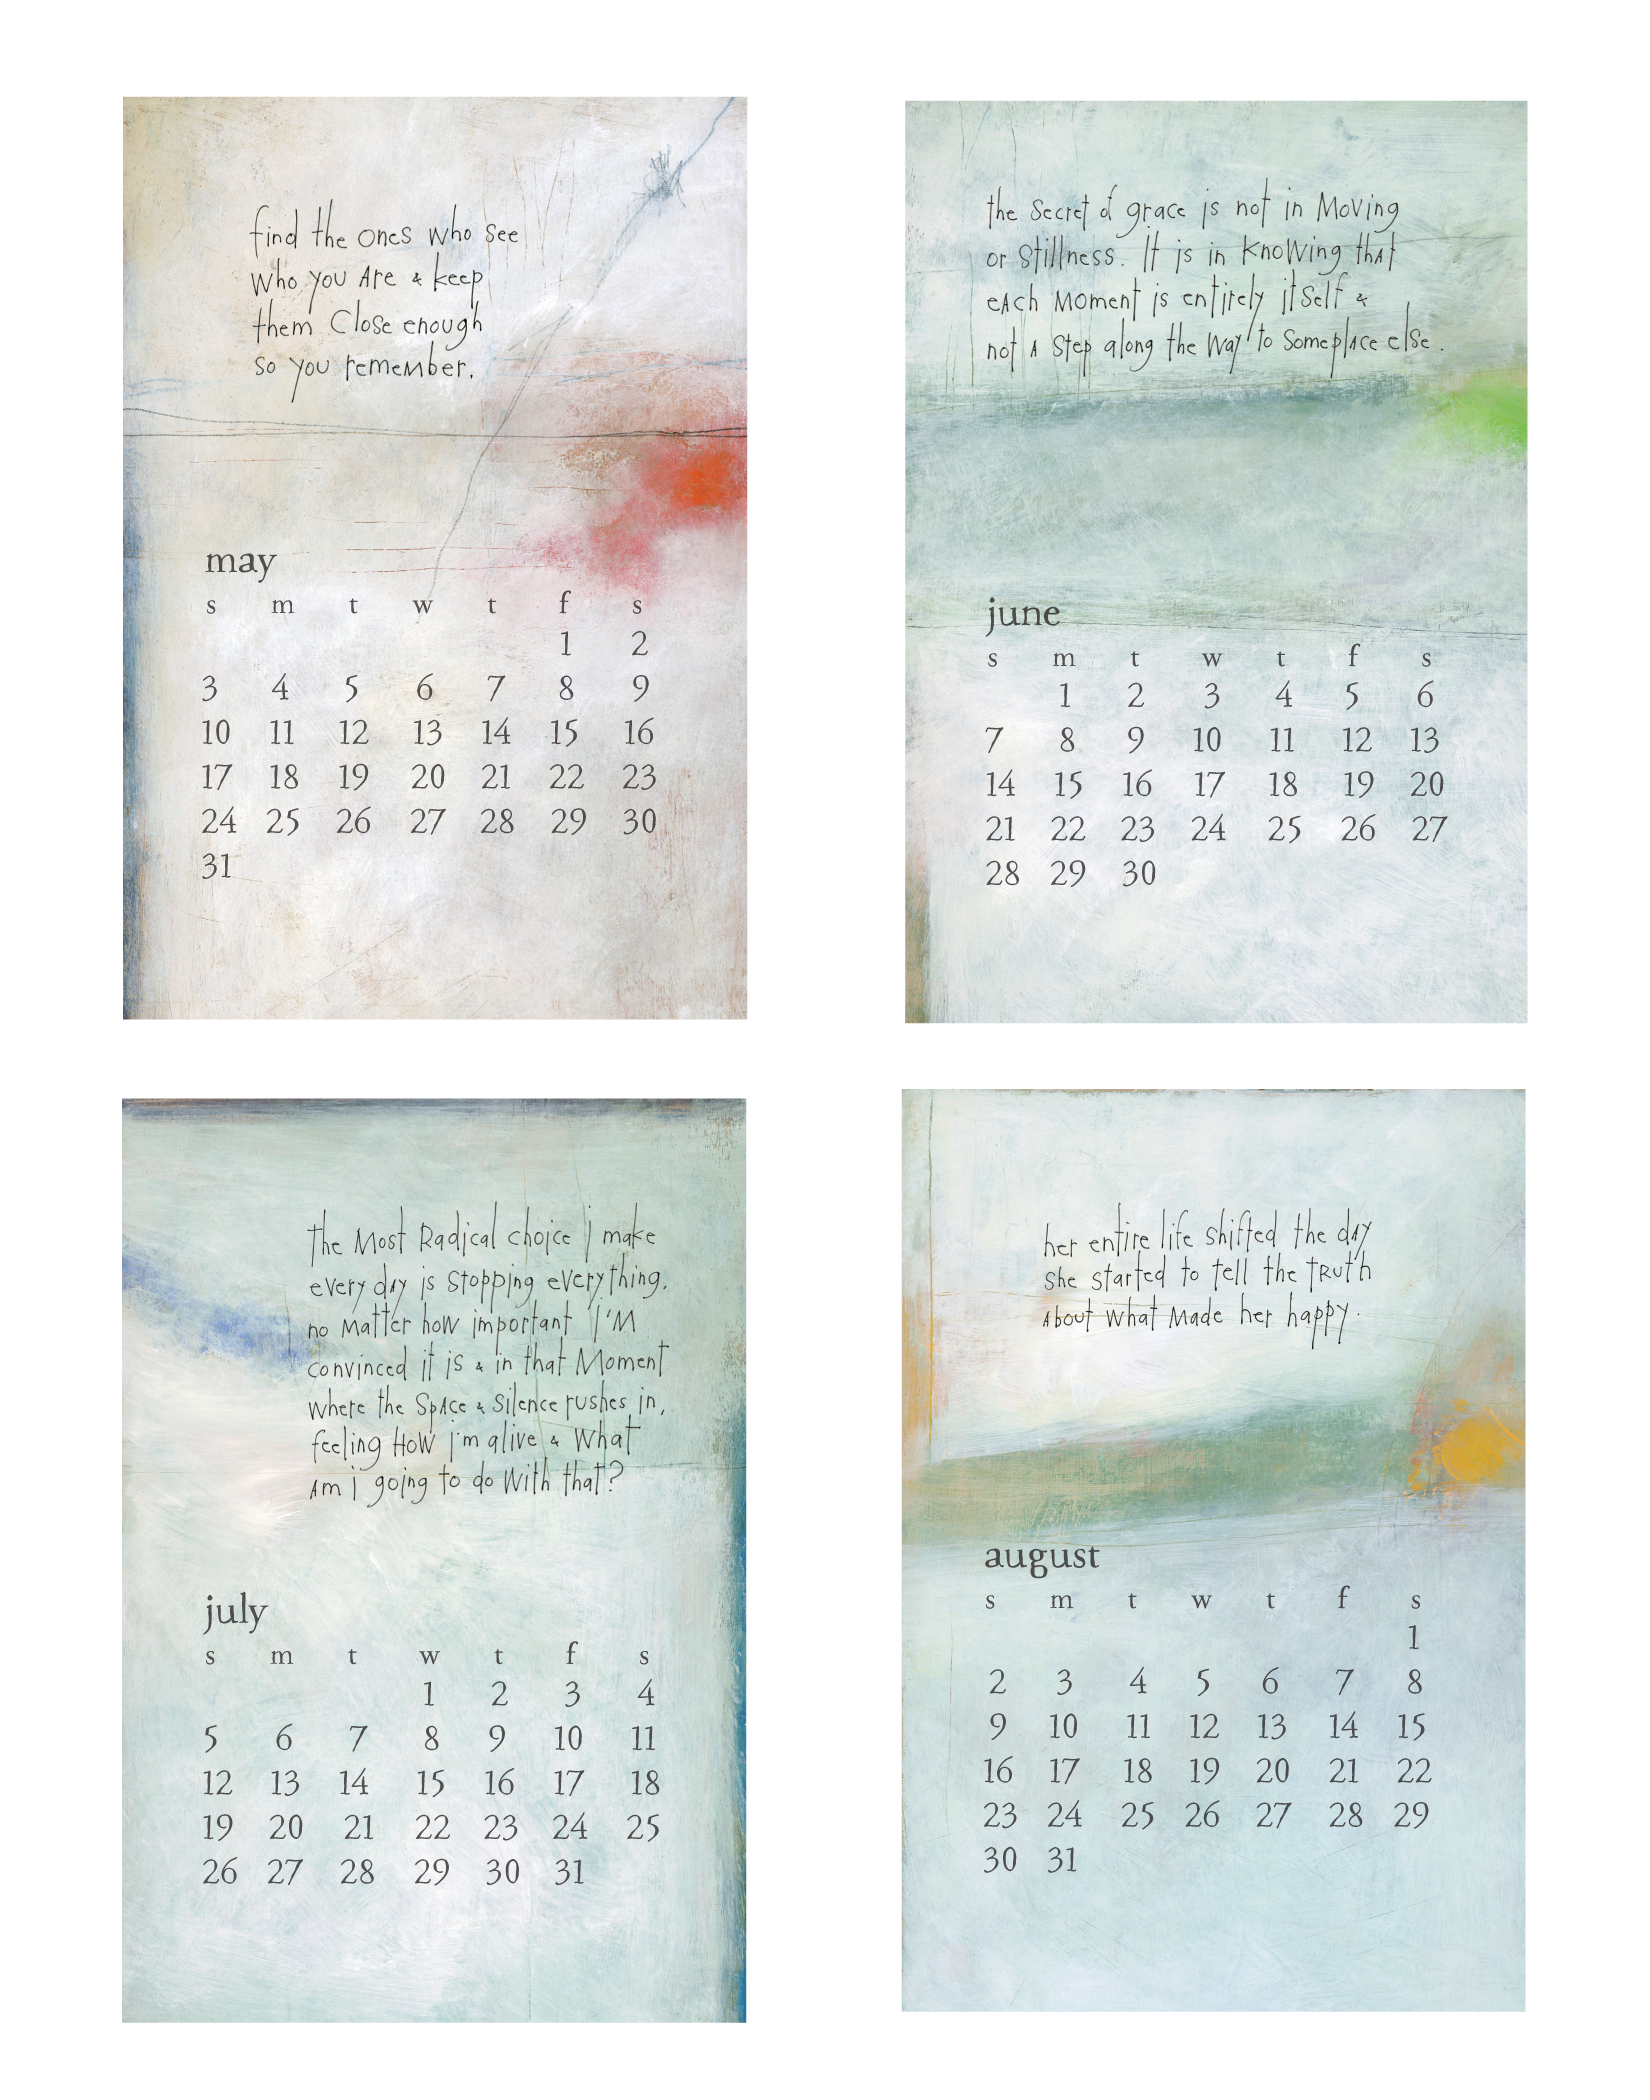 find the ones who see
who you Are & keep
them Close enough
so you remember.
may
s m t w t f s
1 2
3 4 5 6 7 8 9
10 11 12 13 14 15 16
17 18 19 20 21 22 23
24 25 26 27 28 29 30
31
the secret of grace is not in Moving
or stillness. It is in knowing that
each Moment is entirely itself &
not A step along the way to someplace else.
june
s m t w t f s
1 2 3 4 5 6
7 8 9 10 11 12 13
14 15 16 17 18 19 20
21 22 23 24 25 26 27
28 29 30
the Most Radical choice i make
every day is stopping everything.
no matter how important I'M
convinced it is & in that Moment
where the space & silence rushes in,
feeling How i'm alive & what
am i going to do with that?
july
s m t w t f s
1 2 3 4
5 6 7 8 9 10 11
12 13 14 15 16 17 18
19 20 21 22 23 24 25
26 27 28 29 30 31
her entire life shifted the day
she started to tell the TRuth
About what Made her happy.
august
s m t w t f s
1
2 3 4 5 6 7 8
9 10 11 12 13 14 15
16 17 18 19 20 21 22
23 24 25 26 27 28 29
30 31